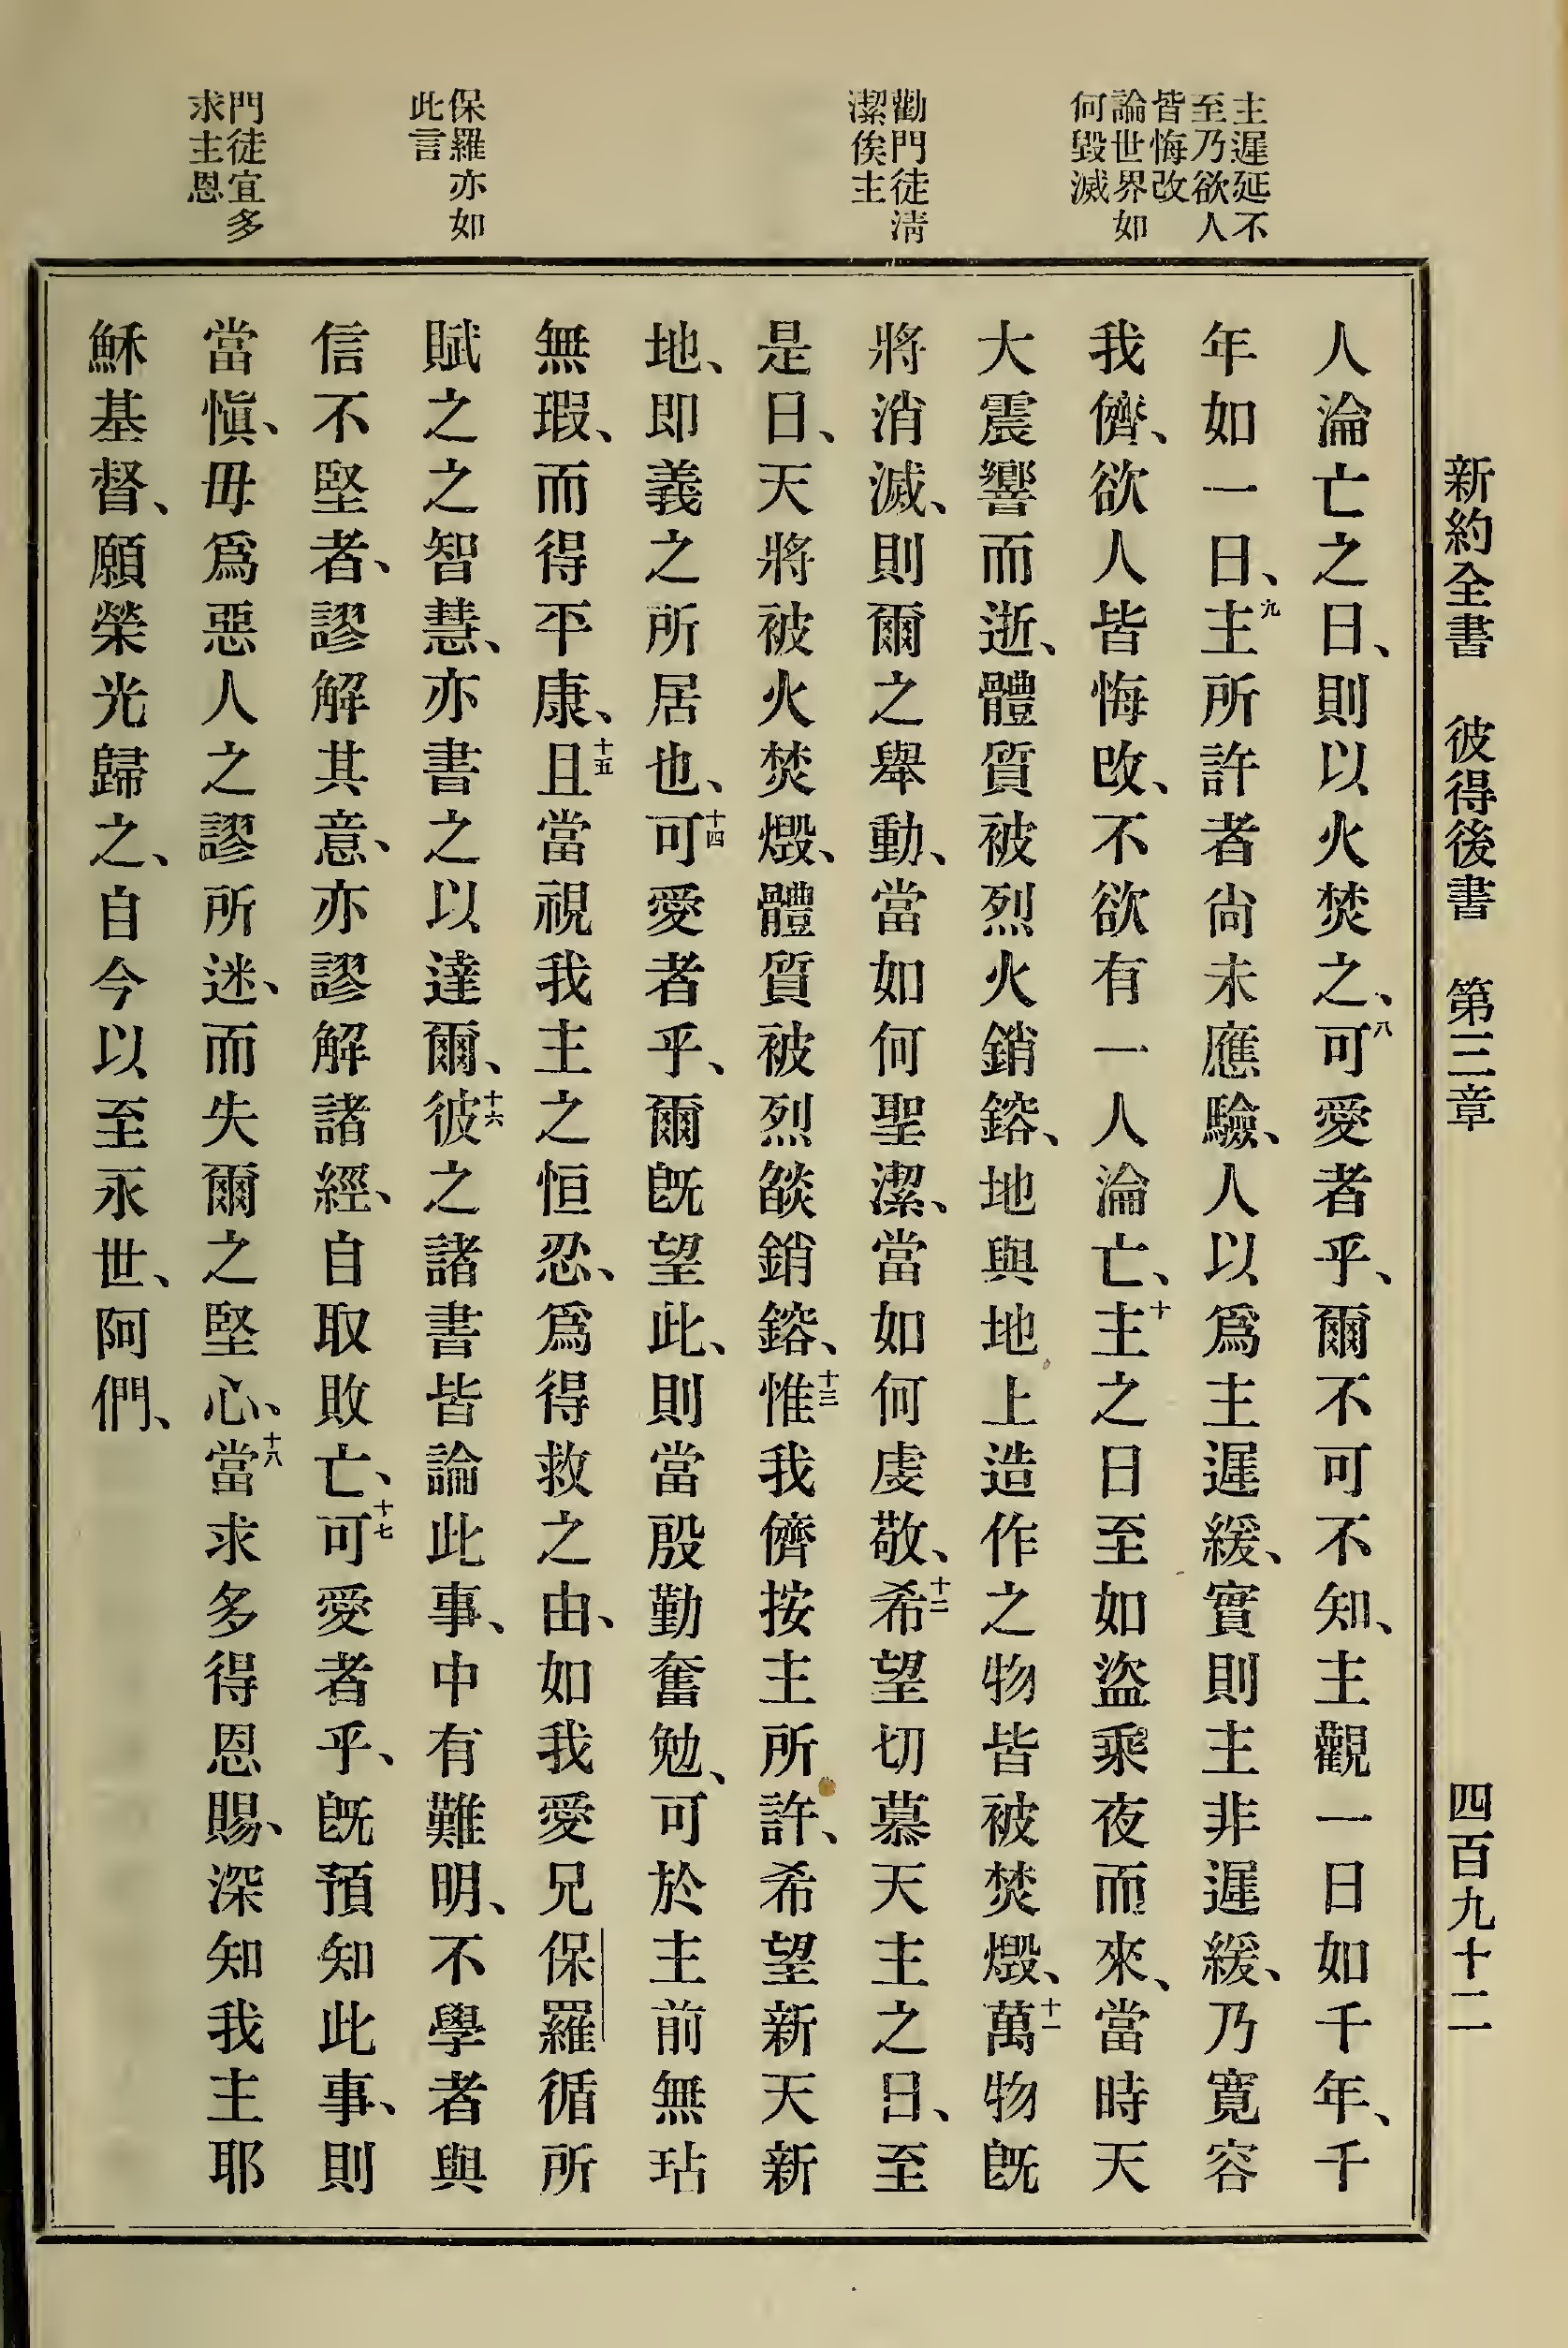 新約全書 彼得後書 第三章 四百九十二
主遲延不
至乃欲人
皆悔改
論世界如
何毀滅
勸門徒淸
潔俟主
保羅亦如
此言
門徒宜多
求主恩
人淪亡之日、則以火焚之、八可愛者乎、爾不可不知、主觀一日如千年、千
年如一日、九主所許者尙未應驗、人以爲主遲緩、實則主非遲緩、乃寬容
我儕、欲人皆悔改、不欲有一人淪亡、十主之日至如盜乘夜而來、當時天
大震響而逝、體質被烈火銷鎔、地與地上造作之物皆被焚燬、十一萬物旣
將消滅、則爾之舉動、當如何聖潔、當如何虔敬、十二希望切慕天主之日、至
是日、天將被火焚燬、體質被烈燄銷鎔、十三惟我儕按主所許、希望新天新
地、即義之所居也、十四可愛者乎、爾旣望此、則當殷勤奮勉、可於主前無玷
無瑕、而得平康、十五且當視我主之恒忍、爲得救之由、如我愛兄保羅循所
賦之之智慧、亦書之以達爾、十六彼之諸書皆論此事、中有難明、不學者與
信不堅者、謬解其意、亦謬解諸經、自取敗亡、十七可愛者乎、旣預知此事、則
當愼、毋爲惡人之謬所迷、而失爾之堅心、十八當求多得恩賜、深知我主耶
穌基督、願榮光歸之、自今以至永世、阿們、